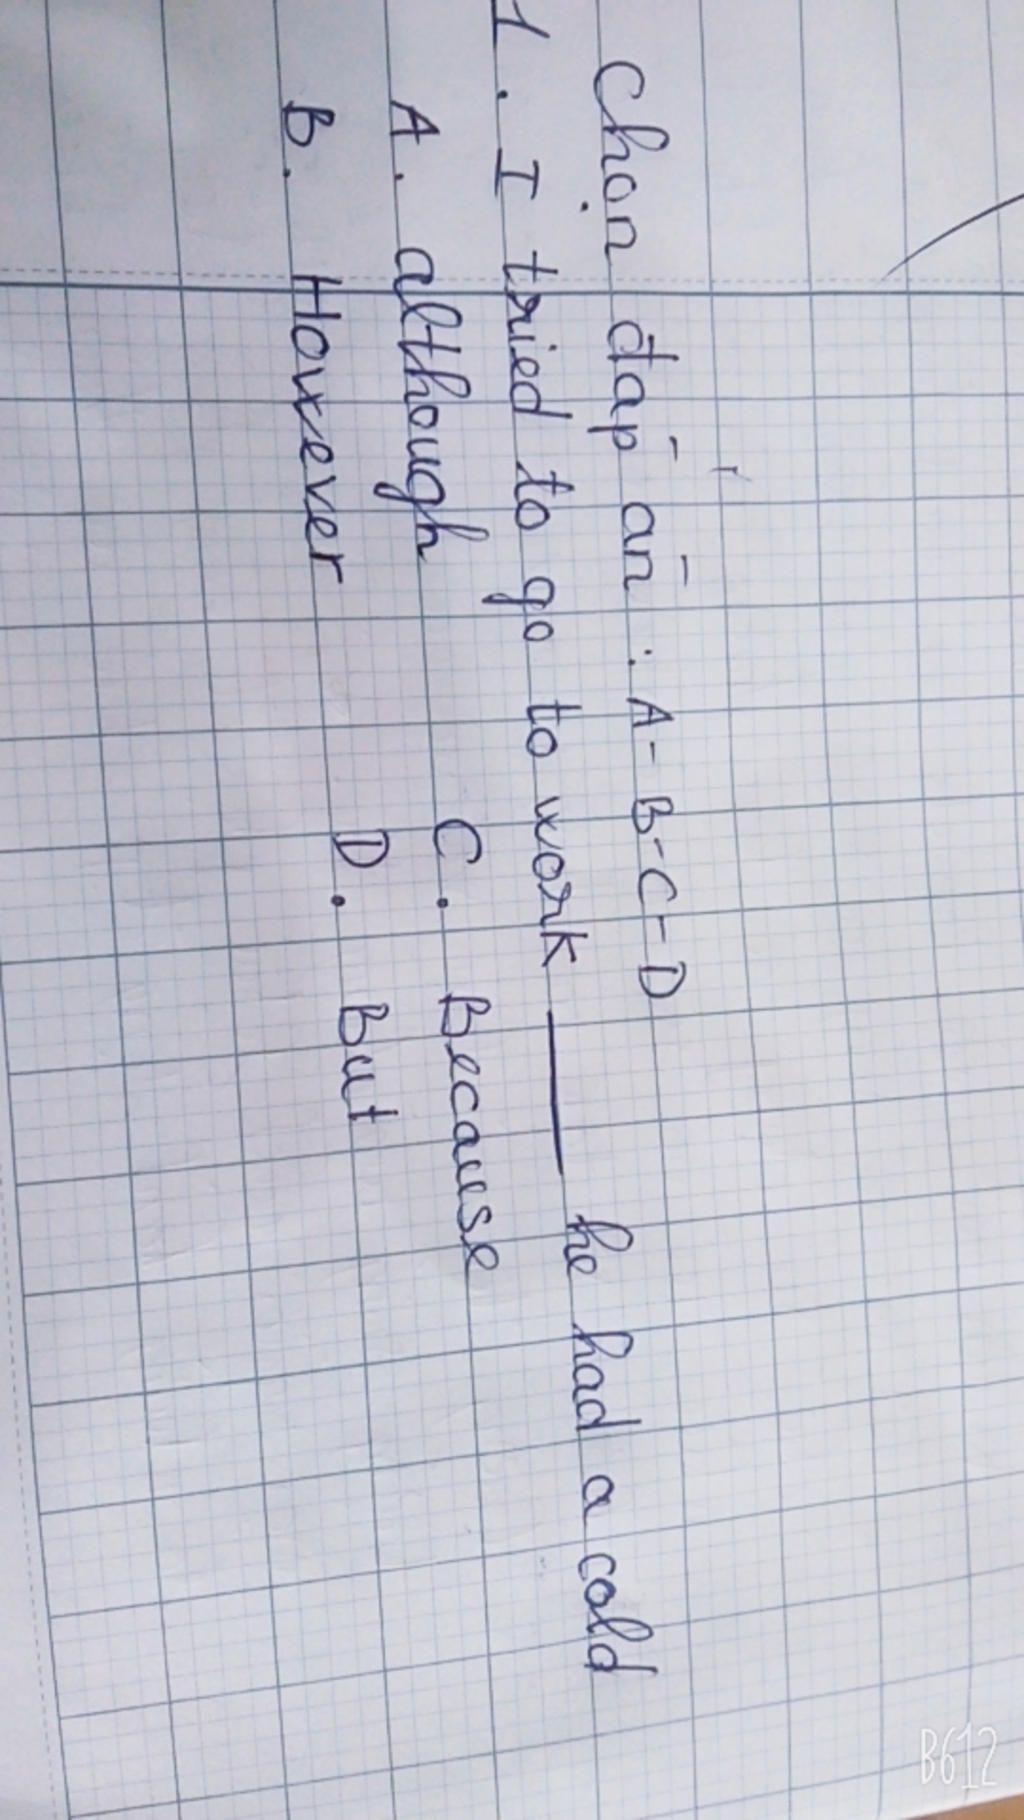 Chọn đáp án : A - B - C - D
1. I tried to go to work ____ he had a cold
A. although C. Because
B. However D. But
B612